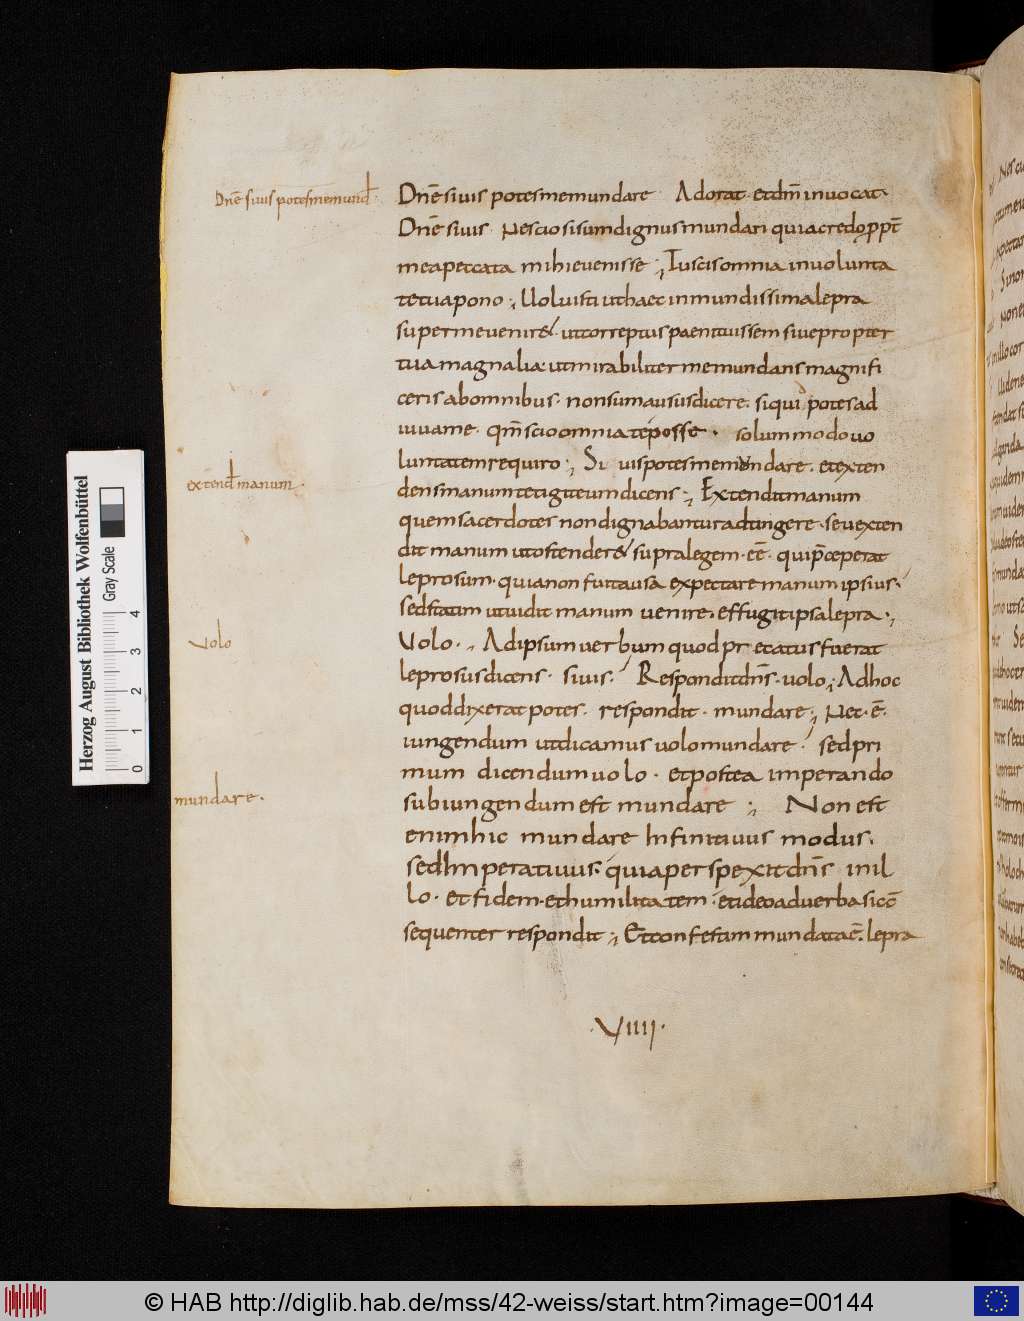 Dnē siuis potesmemund
Dnē siuis potesmemundare Adorat · etdnm inuocat ·
Dnē siuis · Nescio sisumdignusmundari quiacredo ꝓpt
meapeccata mihieuenisse ; Iuscisomnia inuolunta
tetuapono ; Uoluisti uthaec inmundissimalepra
supermeuenire & utcorreptuspaenituissem siuepropter
tua magnalia utmirabiliter memundansmagnifi
ceris abomnibus · nonsumaususdicere · siquid potesad
iuuame · qm̄ scioomnia teposse · solummodouo
luntatemrequiro ; Si uispotesmemundare · etexten
extend manum ·
densmanumtetigiteumdicens ; Extenditmanum
quemsacerdotes nondignabanturadtingere · seuexten
dit manum utostenderet supralegem · eē · quip̄ceperat
leprosum · quianon fuitausa expectare manum ipsius ·
sedstatim utuidit manum uenire · effugitipsalepra · ;
Uolo
Uolo · ; Adipsumuerbum quodprecatusfuerat
leprosusdicens · siuis · Responditdn̄s · uolo ; Adhoc
quoddixerat potes · respondit · mundare ; Nec · ē ·
iungendum utdicamus uolomundare · sedpri
mum dicendumuolo · etpostea imperando
mundare ·
subiungendumest mundare ; Non est
enimhic mundare Infinitiuus modus ·
sedImperatiuus · quiaperspexitdn̄s inil
lo · etfidem · ethumilitatem · etideoaduerbasicō
sequenter respondit ; Etconfestim mundataē · lepra
· VIIII ·
Herzog August Bibliothek Wolfenbüttel
Gray Scale
0 1 2 3 4
© HAB http://diglib.hab.de/mss/42-weiss/start.htm?image=00144